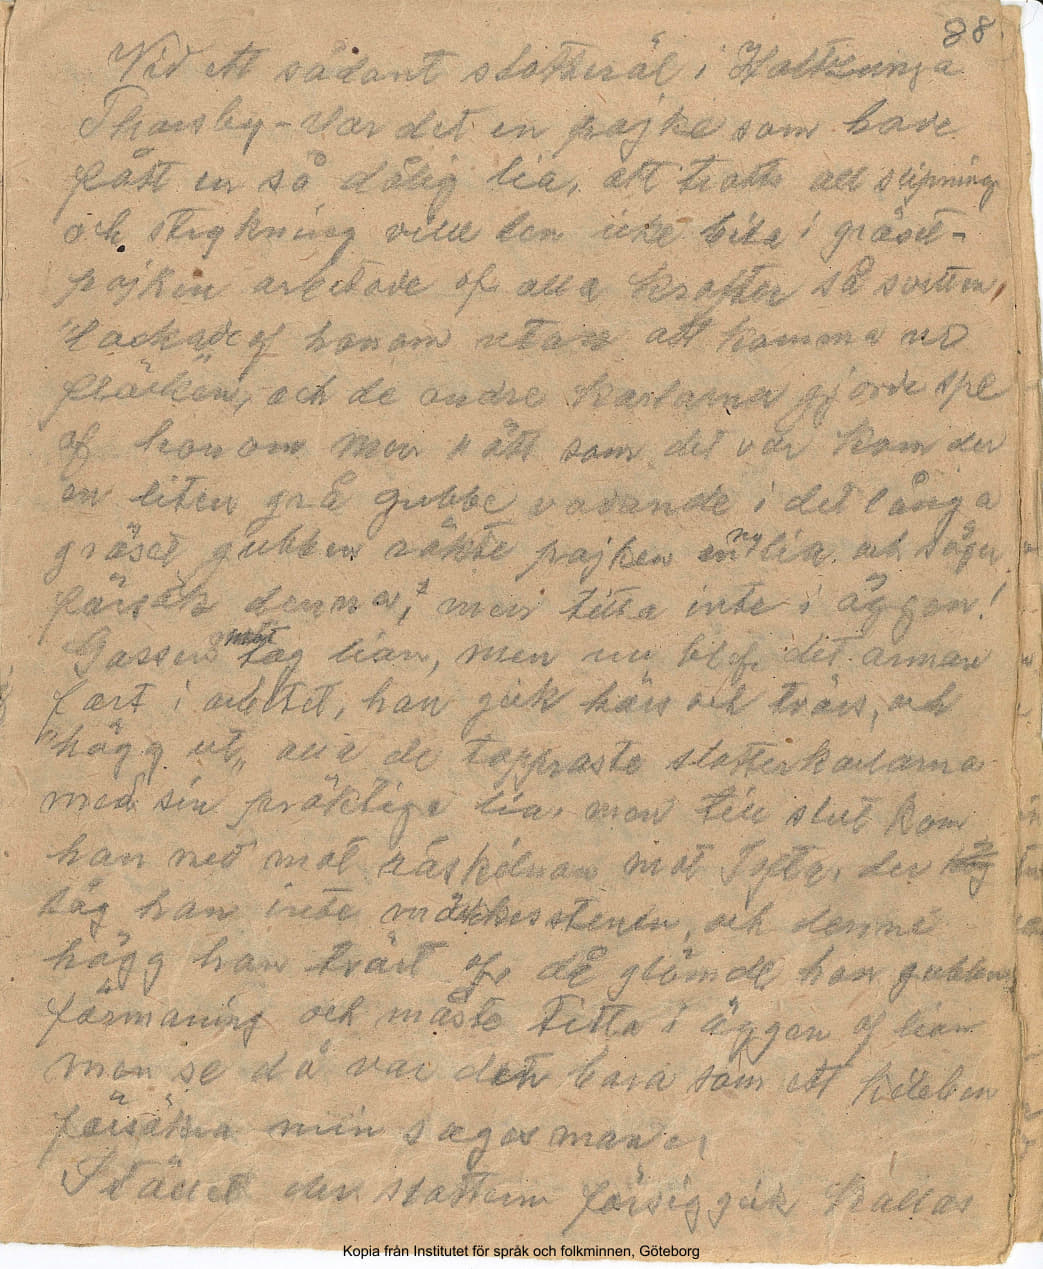 88.
Vid ett sådant slotteröl i Haltzunga
Thorsby - Var det en pojke som hade
fått en så dålig lia, att trotts all slipning
och strykning ville den icke bita i gräset -
pojken arbetade af alla krafter så svetten
lackade af honom utan att komma ur
fläcken, och de andre karlarna gjorde spe
af honom men rätt som det var kom der
en liten grå gubbe vadande i det långa
gräset gubben räkte pojken en ny lia och säger
försök denna, men titta inte i äggen!
Gossen mot tog lian, men nu blef det annan
fart i arbetet, han gick härs och tvärs, och
"högg ut" alla de toppraste slotterkarlarna
med sin präktiga lia, men till slut kom
han ned mot råskilnan mot Tofta, der
såg han inte märkesstenen, och denne
högg han tvärt af, då glömde han gubbens
förmaning och måste titta i äggen af lian
men se då var den bara som ett
försäkra min sagesman,
Stället der slottern försiggick kallas
Kopia från Institutet för språk och folkminnen, Göteborg